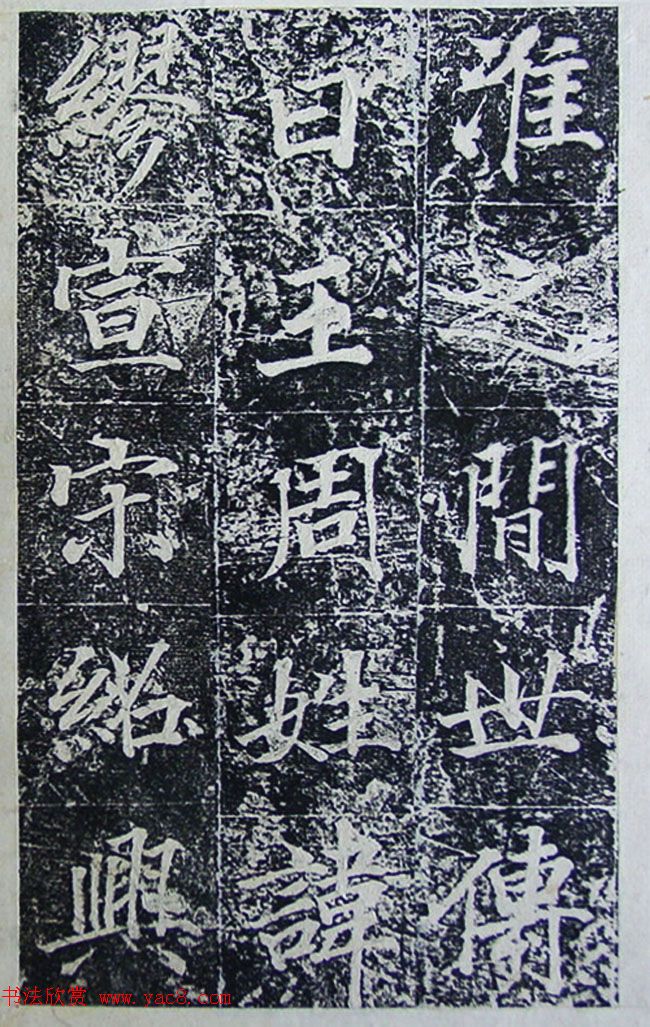 淮之間世傳
曰王周姓諱
繆宣宗紹興
书法欣赏 www.yac8.com